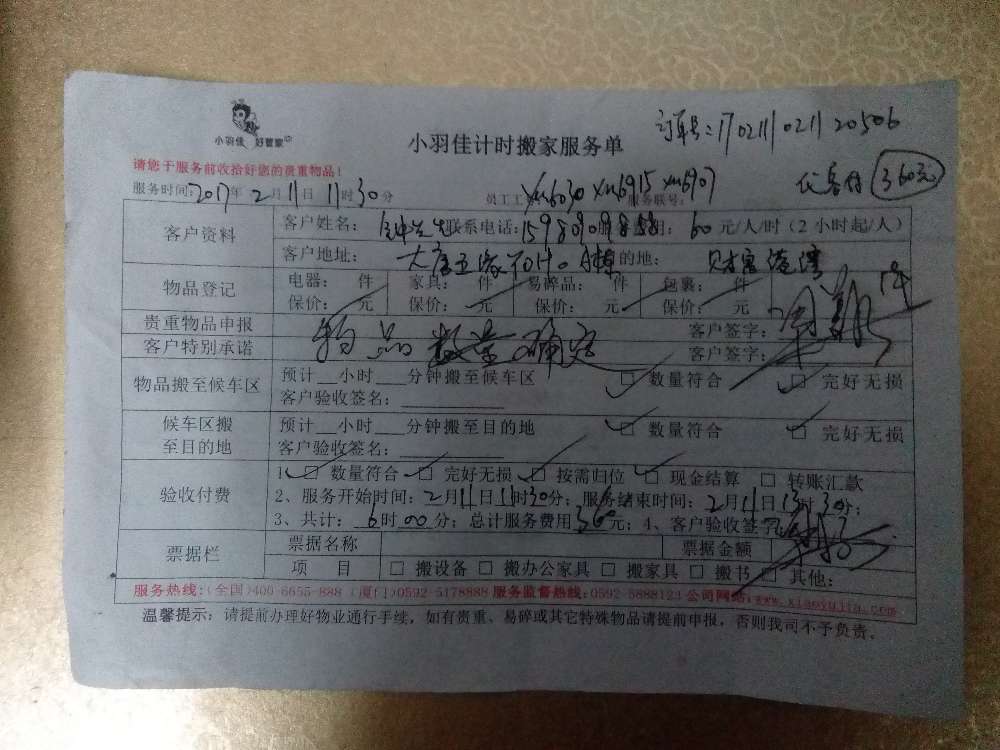 小羽佳 好管家
小羽佳计时搬家服务单
订单号:170211021120506
请您于服务前收拾好您的贵重物品!
服务时间:2017年2月11日11时30分 员工工 xm6030 xm6915 xm6907 服务联号:
360元
客户资料
客户姓名: 钟先生 联系电话: 用: 60元/人/时(2小时起/人)
客户地址: 的地: 财富港湾
物品登记
电器: 件 家具: 件 易碎品: 件 包裹: 件
保价: 元 保价: 元 保价: 元 保价: 元
贵重物品申报 客户签字:
物品数量确定
客户特别承诺 客户签字:
物品搬至候车区
预计__小时___分钟搬至候车区 □ 数量符合 □ 完好无损
客户验收签名:
候车区搬至目的地
预计__小时___分钟搬至目的地 □ 数量符合 □ 完好无损
客户验收签名:
验收付费
1、□ 数量符合 □ 完好无损 □ 按需归位 □ 现金结算 □ 转账汇款
2、服务开始时间:2月11日11时30分;服务结束时间:2月11日13时30分;
3、共计:6时00分;总计服务费用360元;4、客户验收签字
票据栏
票据名称 票据金额
项 目 □ 搬设备 □ 搬办公家具 □ 搬家具 □ 搬书 □ 其他:
服务热线:(全国)400-6655-888 (厦门)0592-5178888 服务监督热线:0592-5888123 公司网站:www.xiaoyujia.com
温馨提示:请提前办理好物业通行手续,如有贵重、易碎或其它特殊物品请提前申报,否则我司不予负责。